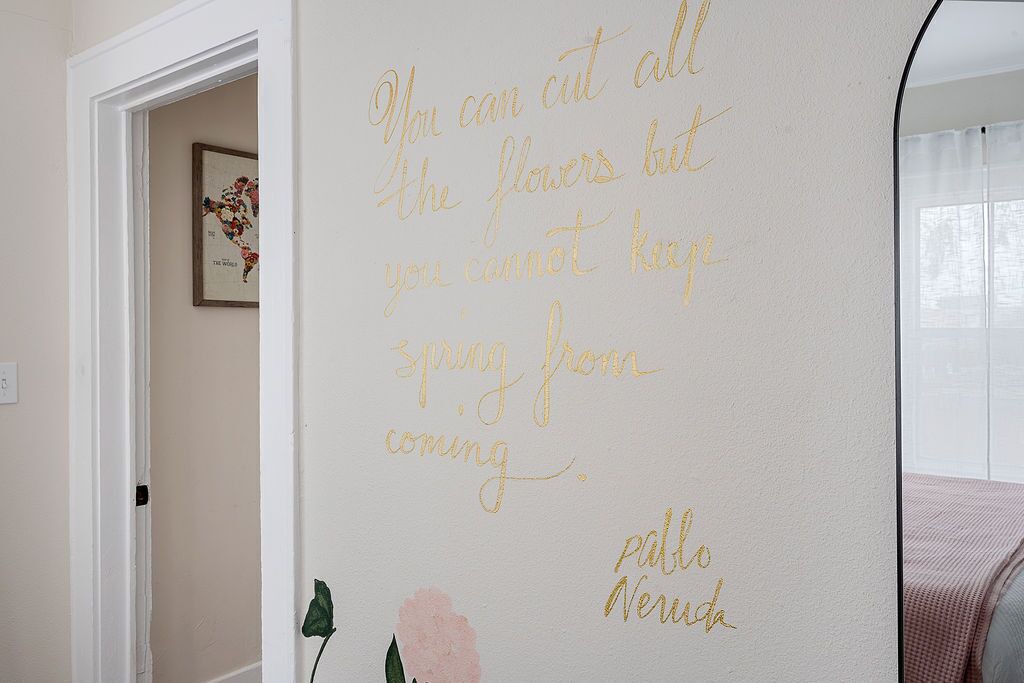 You can cut all
the flowers but
you cannot keep
spring from
coming.
Pablo
Neruda
THE WORLD